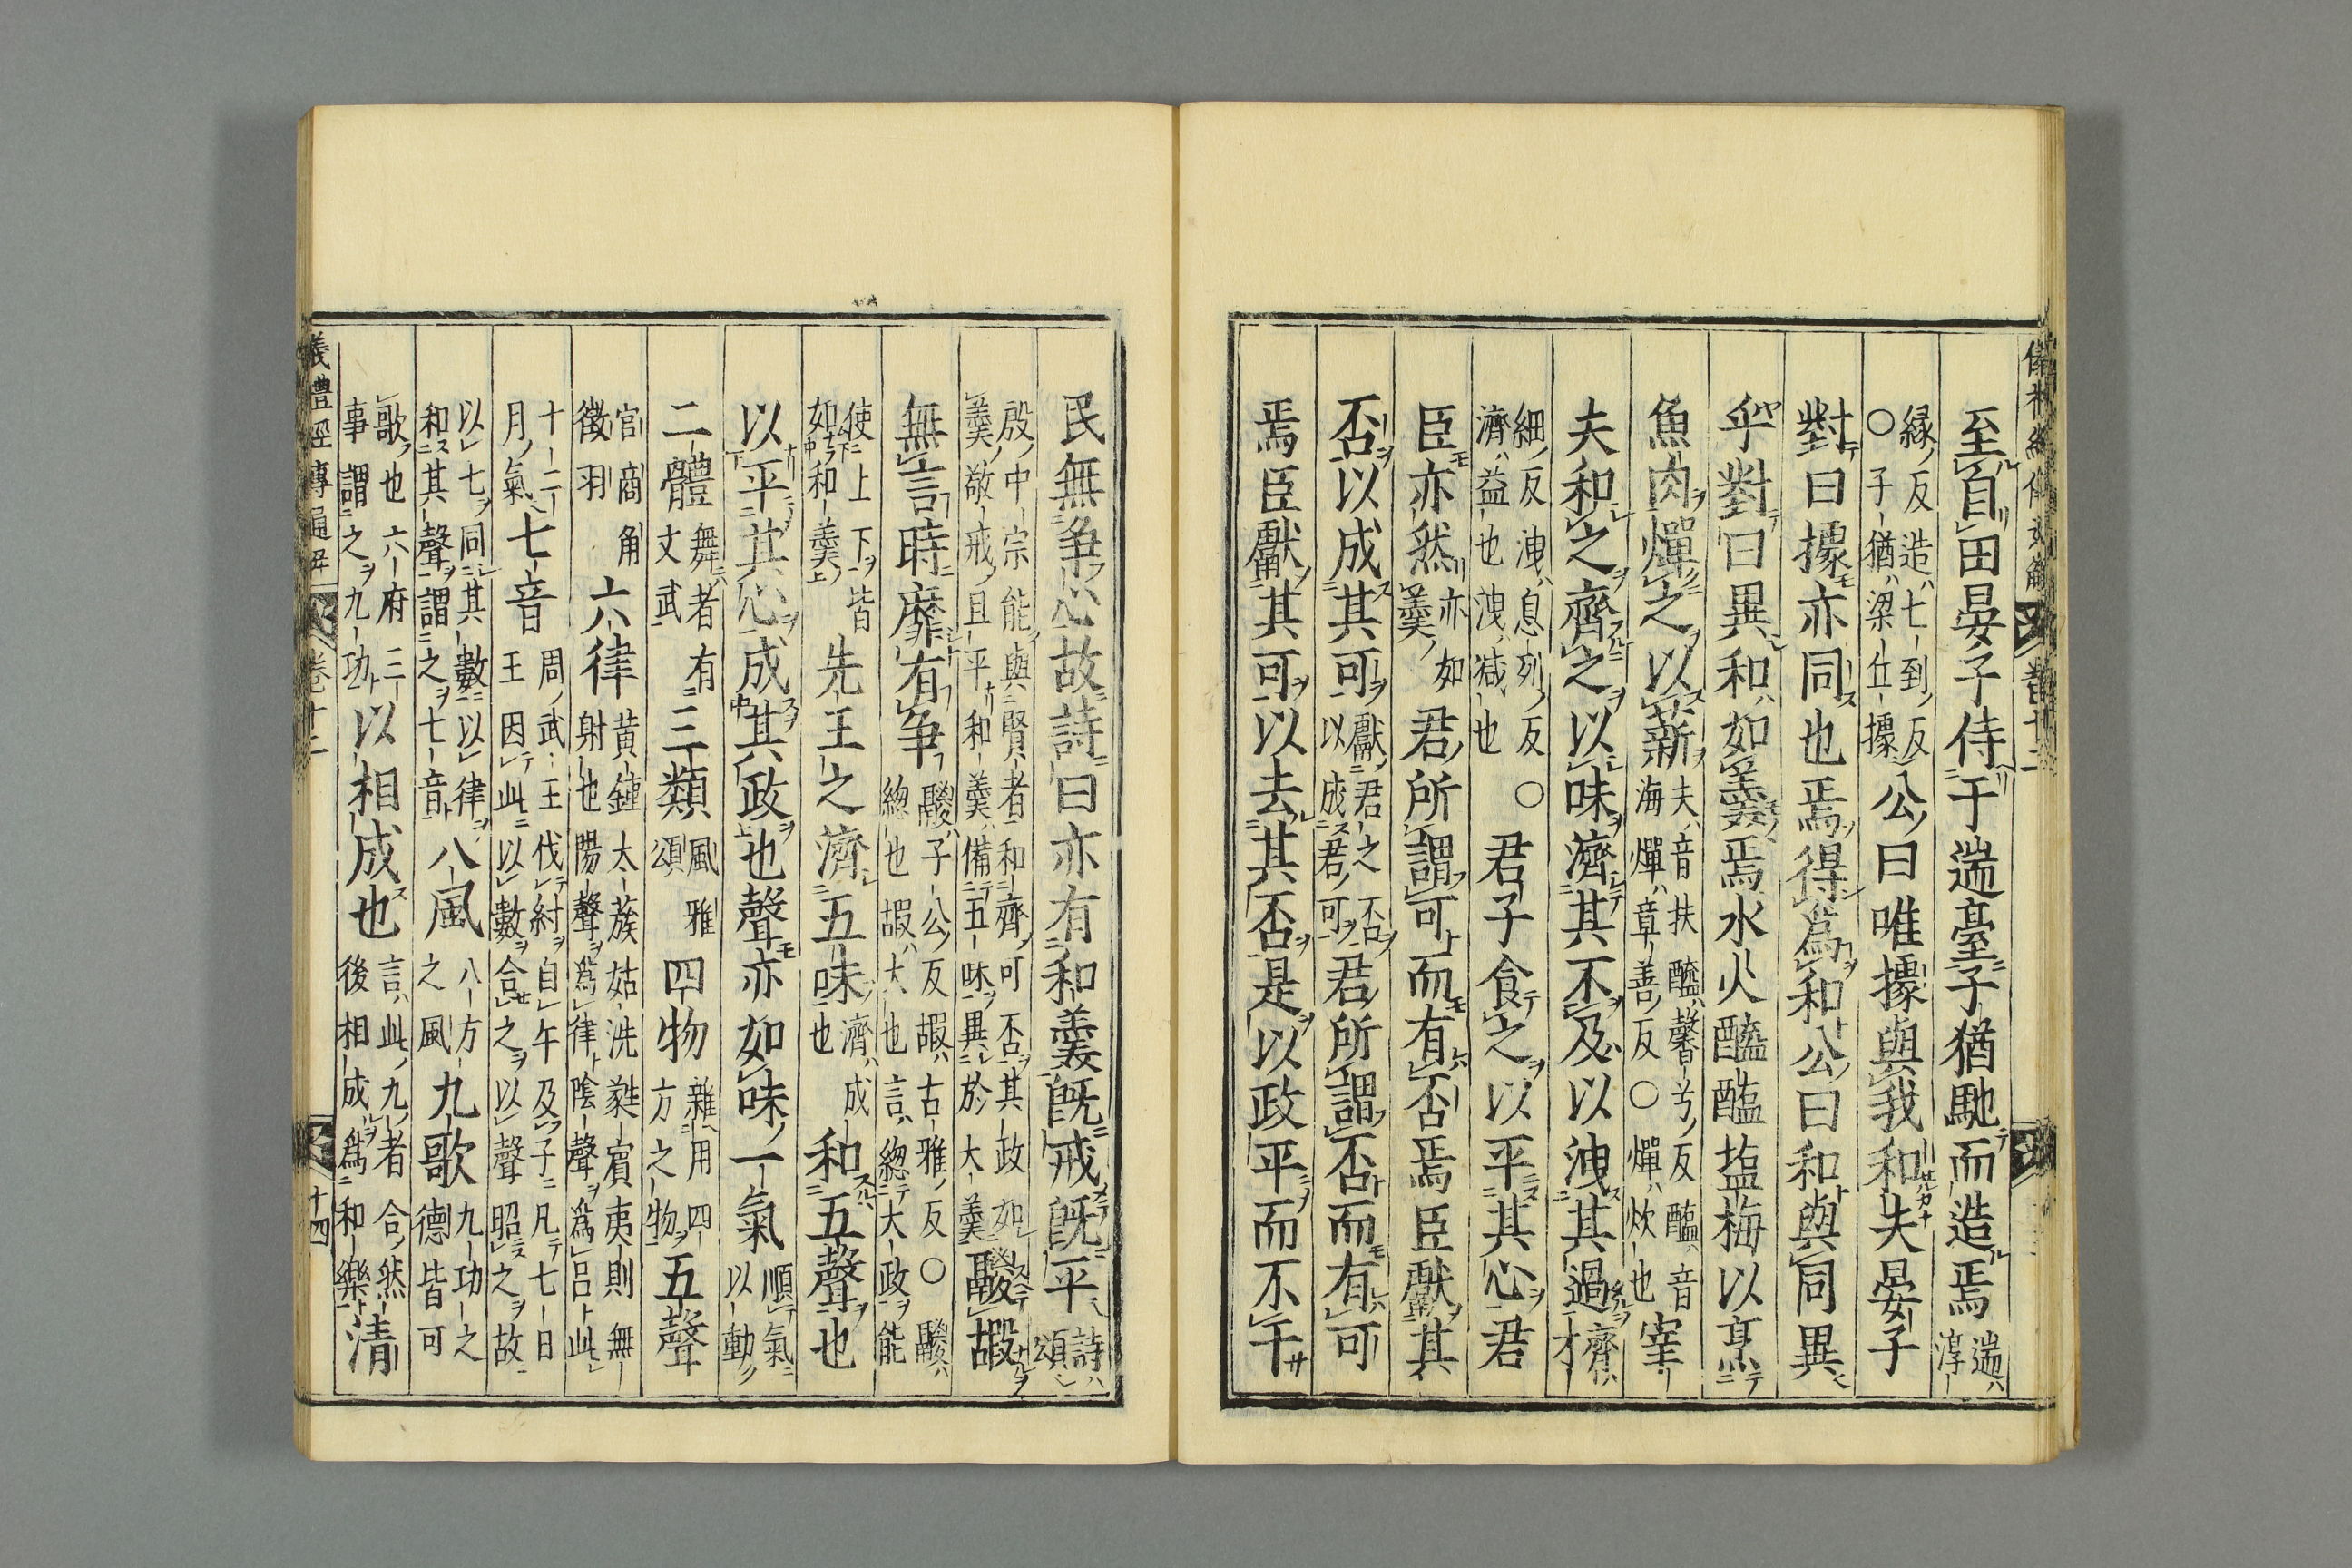 至自田晏子侍于遄臺子猶馳而造焉遄淳
縁反造七到反〇子猶梁丘據公曰唯據與我和夫晏子
對曰據亦同也焉得爲和公曰和與同異
乎對曰異和如羹焉水火醯醢塩梅以烹
魚肉燀之以薪夫音扶醯馨兮反醢音海燀章善反〇燀炊也宰
夫和之齊之以味濟其不及以洩其過齊才
細反洩息列反濟益也洩減也〇君子食之以平其心君
臣亦然亦如羹君所謂可而有否焉臣獻其
否以成其可獻君之否以成君可君所謂否而有可
焉臣獻其可以去其否是以政平而不干
民無爭心故詩曰亦有和羹既戒既平詩頌
殷中宗能與賢者和齊可否其政如羹敬戒且平和羹備五味異於大羹鬷嘏
無言時靡有爭鬷子公反嘏古雅反〇鬷總也嘏大也言總大政能
使上下皆如和羹先王之濟五味濟成也和五聲也
以平其心成其政也聲亦如味一氣順氣以動
二體舞者有文武三類風雅頌四物雜用四方之物五聲
宮商角徵羽六律黃鍾太蔟姑洗蕤賓夷則無射也陽聲爲律陰聲爲呂此
十二月氣七音周武王伐紂自午及子凡七日王因此以數合之以聲昭之故
以七同其數以律和其聲謂之七音八風八方之風九歌九功之德皆可
歌也六府三事謂之九功以相成也言此九者合然後相成爲和樂清
儀禮經傳通解
卷十二
十四